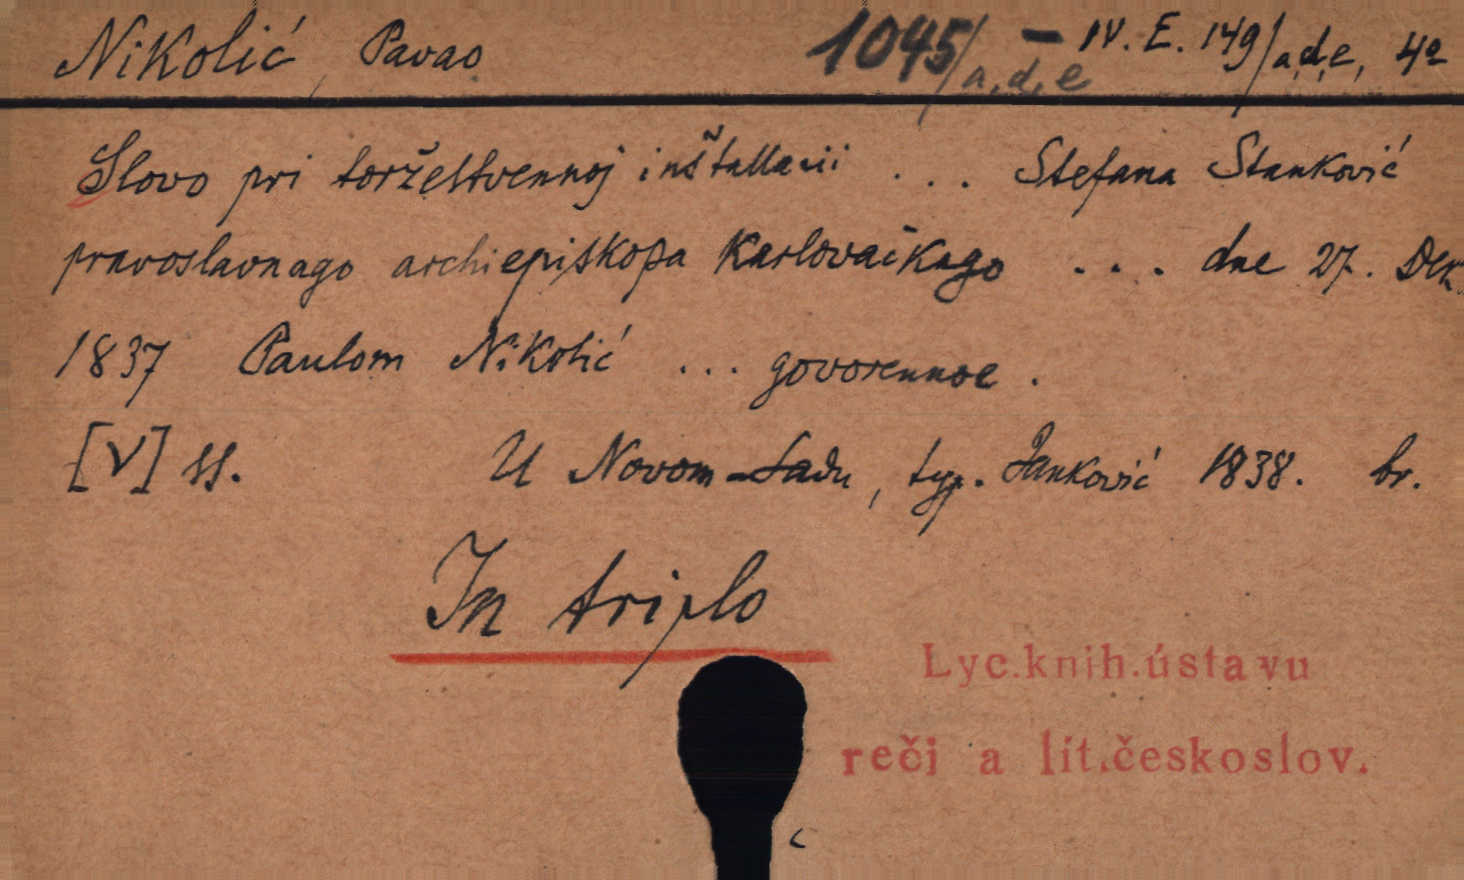 Nikolić, Pavao 1045/a,d,e — IV. E. 149/a,d,e, 4º
Slovo pri toržestvennoj inštallacii ... Stefana Stanković
pravoslavnago archiepiskopa Karlovačkago ... dne 27. Dek.
1837 Paulom Nikolić ... govorennoe.
[V] ss. U Novom-Sadu, typ. Janković 1838. br.
In triplo
Lyc.knih.ústavu
reči a lit.českoslov.